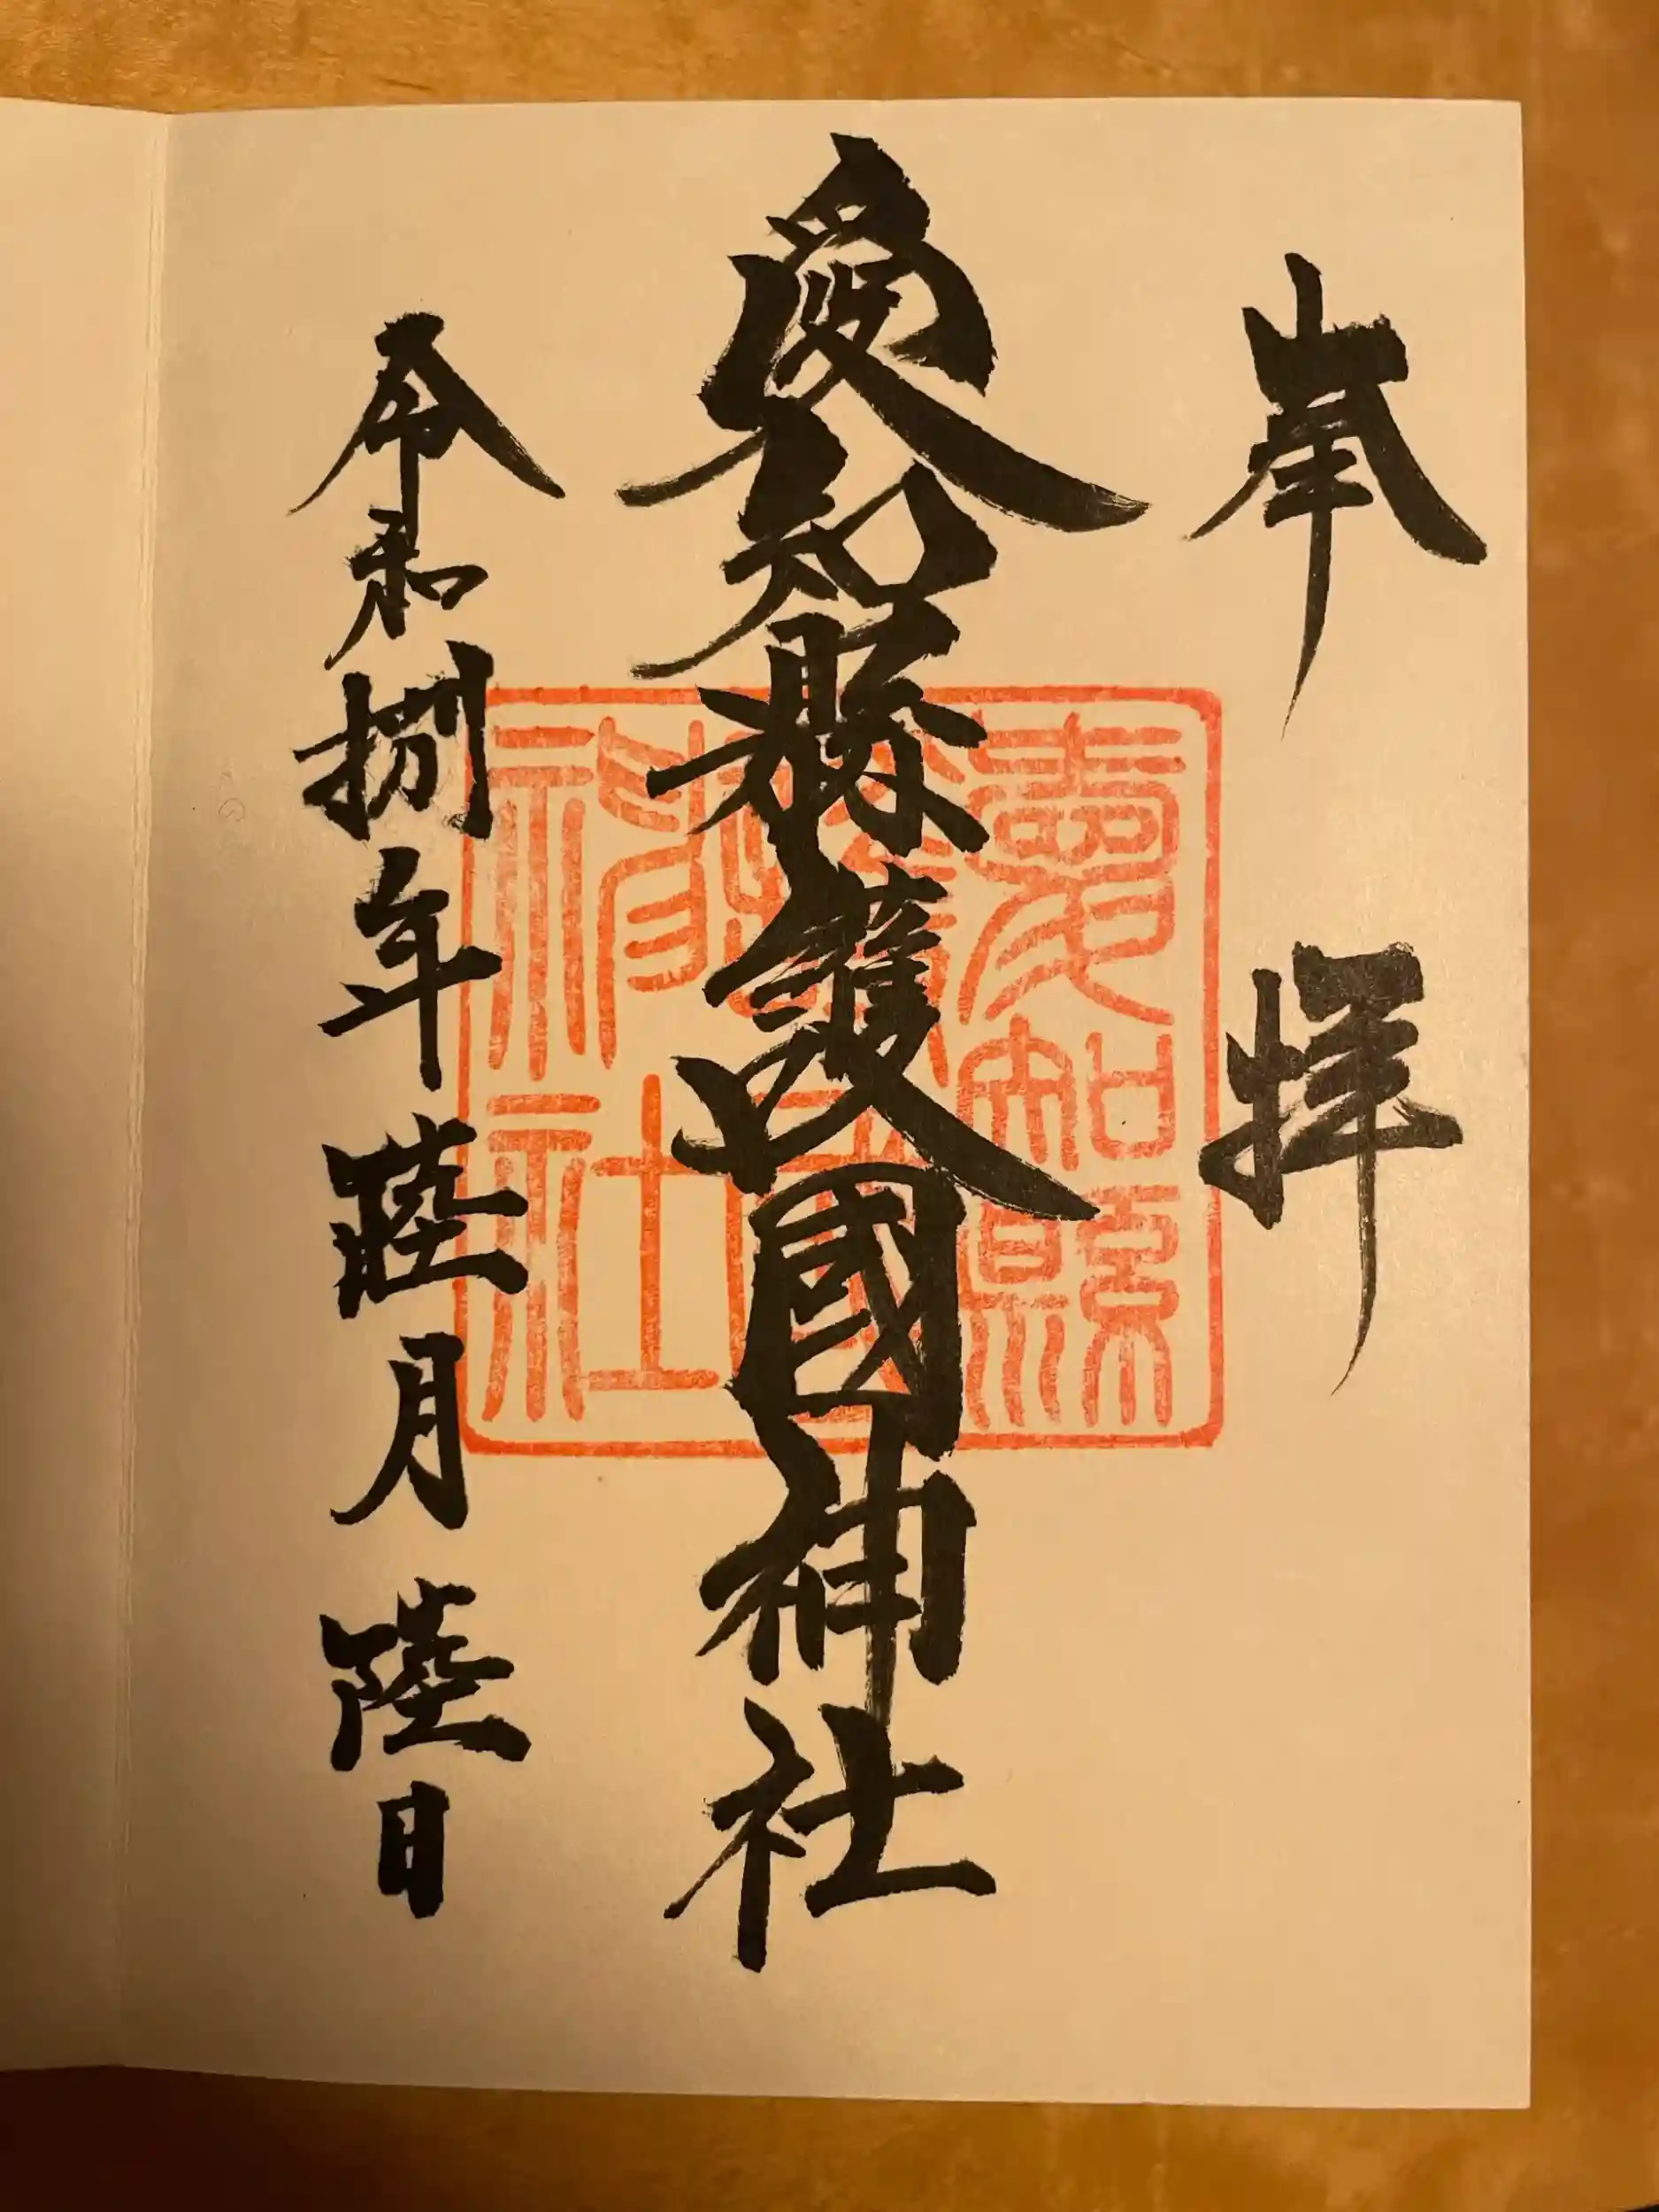 奉拝
愛知縣護國神社
令和捌年陸月陸日
愛知縣
護國
神社